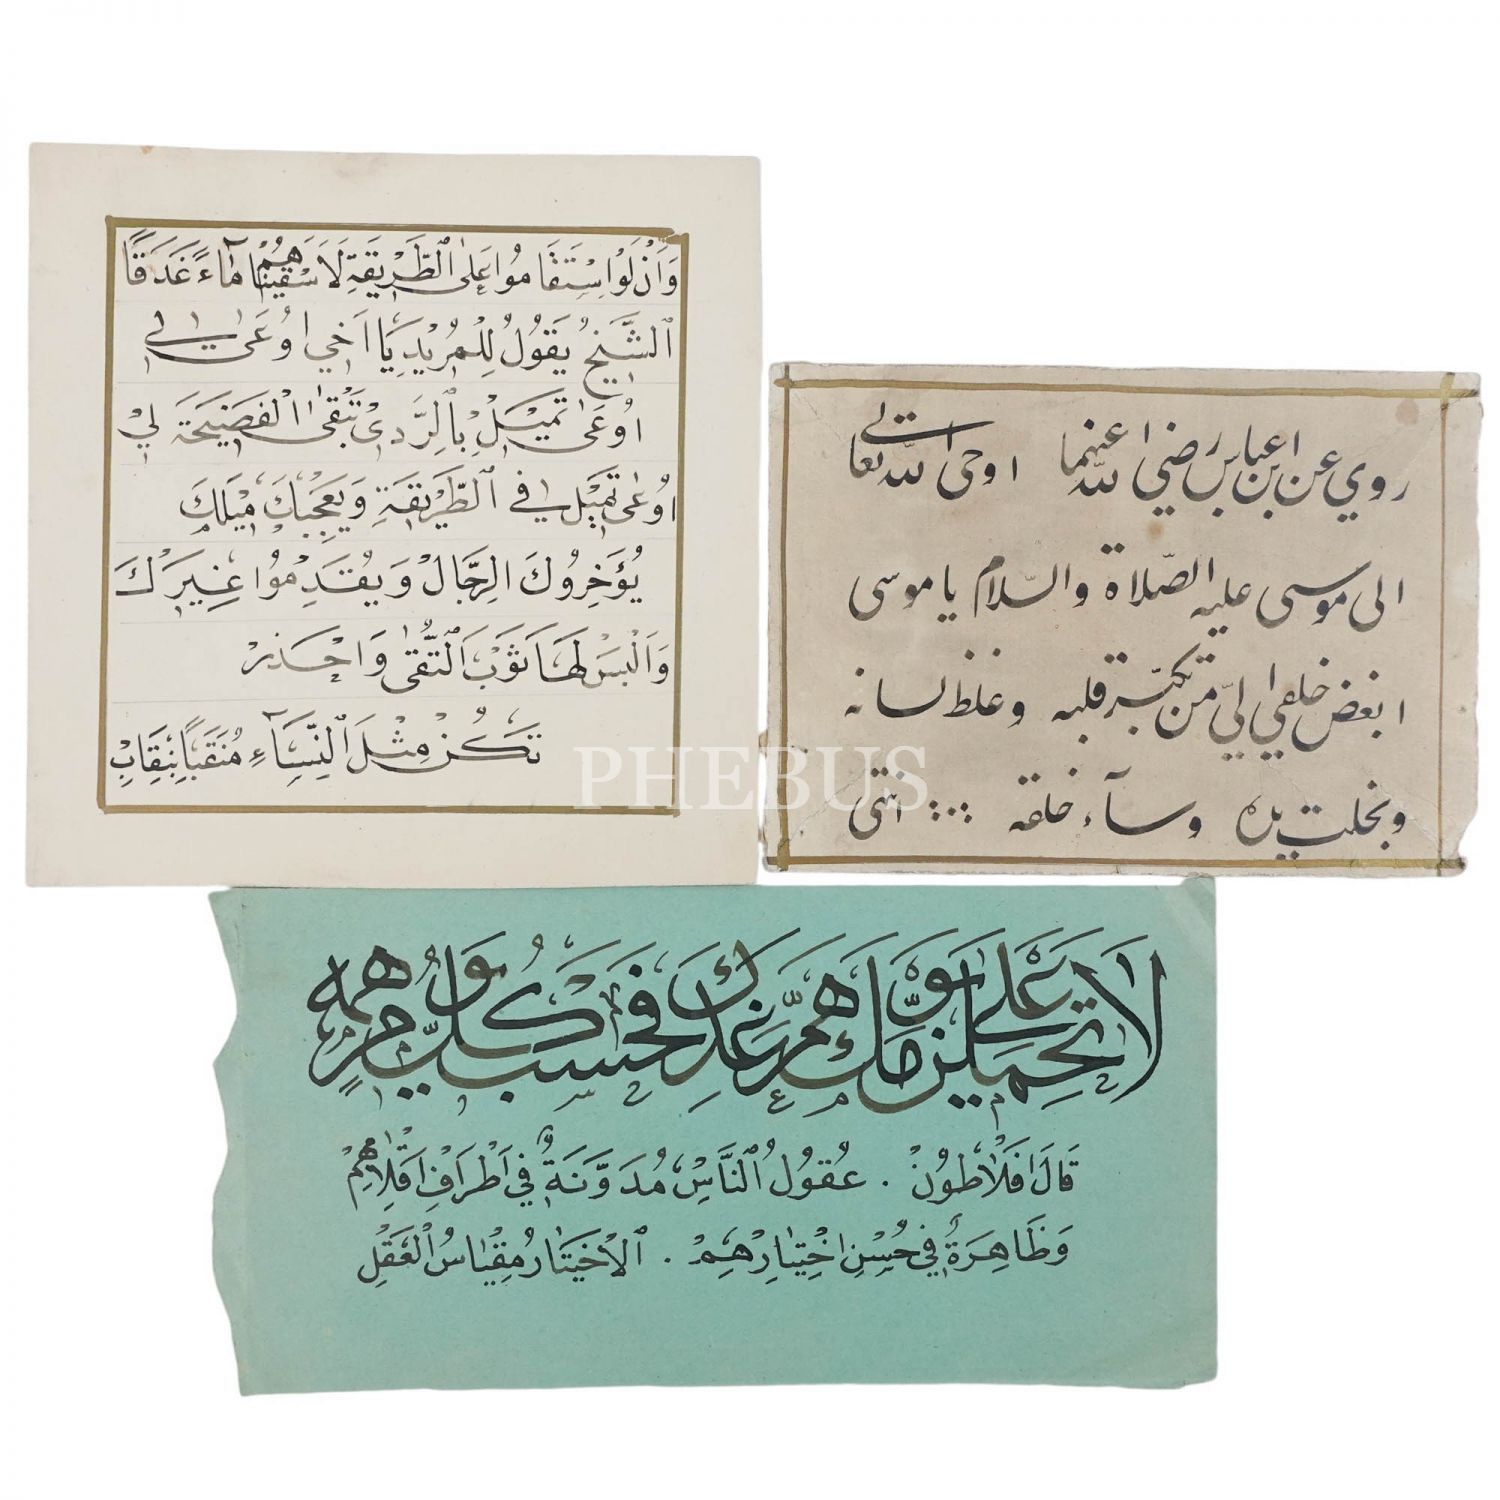 وَاَنْ لَوِاسْتَقَامُوا عَلَى الطَّرِيقَةِ لَاَسْقَيْنَاهُمْ مَاءً غَدَقًا
الشَّيْخُ يَقُولُ لِلْمُرِيْدِ يَا اَخِي اُوْعَى لِي
اُوْعَى تَمِيْلْ بِالرَّدِيْ تَبْقَى الْفَضِيْحَةَ لِيْ
اُوْعَى تَمِيْل فِي الطَّرِيْقَةِ وَيَعْجِبُكْ مَيْلَكْ
يُؤَخِرُوكَ الرِجَالْ وَيُقَدِمُوا غَيْرَكْ
وَالْبَسْ لَهَا ثَوْبَ التُّقَى وَاحْذَرْ
تَكُنْ مِثْلَ النِّسَاءِ مُنَقَّبًا بِنِقَابِ
روي عن ابن عباس رضي الله عنهما اوحى الله تعالى
الى موسى عليه الصّلاة والسّلام يا موسى
ابغض خلقي اليّ من تكبّر قلبه وغلظ لسانه
وبخلت يده وساء خلقه انتهى
PHEBUS
لَا تَحْمِلَنَّ عَلَى يَوْمِكَ هَمَّ غَدِكَ فَحَسْبُ كُلِّ يَوْمٍ هَمُّهُ
قَالَ اَفْلَاطُوْنْ . عُقُولُ النَّاسِ مُدَوَّنَةٌ فِي اَطْرَافِ اَقْلَامِهِمْ
وَظَاهِرَةٌ فِي حُسْنِ اخْتِيَارِهِمْ . الْاِخْتِيَارُ مِقْيَاسُ الْعَقْلِ